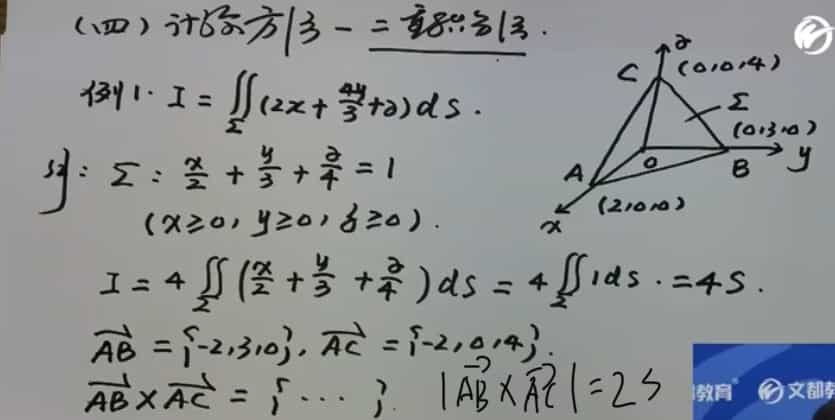 (四) 计算方法 — 二重积分法.
例1. I = ∬_Σ (2x + 4y/3 + z) dS.
解: Σ: x/2 + y/3 + z/4 = 1
(x≥0, y≥0, z≥0).
I = 4 ∬_Σ (x/2 + y/3 + z/4) dS = 4 ∬_Σ 1 dS. = 4S.
AB→ = {-2,3,0}, AC→ = {-2,0,4}.
AB→ × AC→ = {···}. |AB→ × AC→| = 2S
z
C (0,0,4)
Σ
(0,3,0)
O
B
y
A
(2,0,0)
x
教育® 文都教